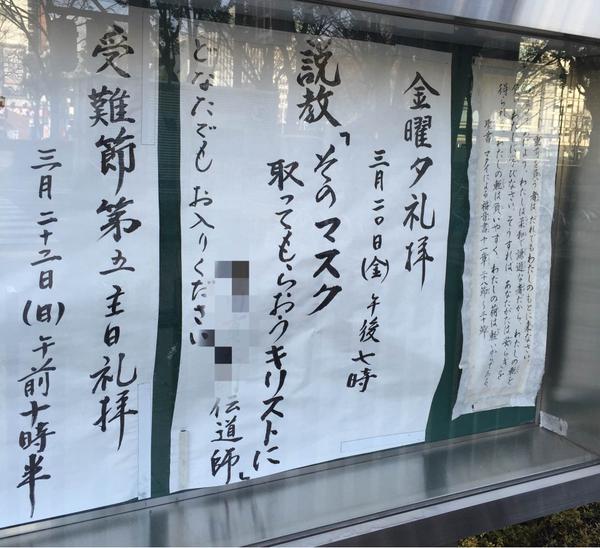 わたしのもとに来なさい。
わたしは柔和で謙遜な者だから、わたしの軛を
わたしに学びなさい。そうすれば、あなたがたは安らぎを
得られる。わたしの軛は負いやすく、わたしの荷は軽いからである。
聖書 マタイによる福音書十一章二十八節~三十節
金曜夕礼拝
三月二〇日(金)午後七時
説教「そのマスク
取ってもらおうキリストに」
伝道師
どなたでもお入りください
受難節第五主日礼拝
三月二十二日(日)午前十時半